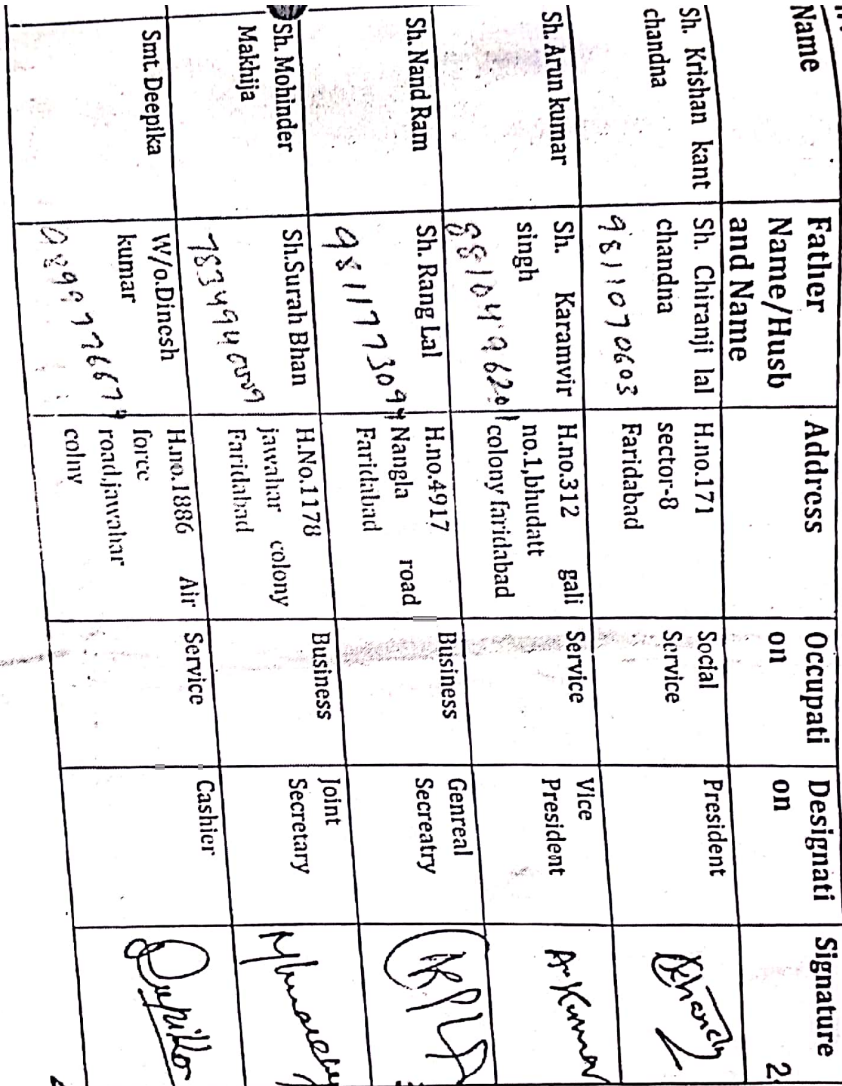 Name
Father
Name/Husb
and Name
Address
Occupati
on
Designati
on
Signature
Sh. Krishan kant
chandna
Sh. Chiranji lal
chandna
9811070603
H.no.171
sector-8
Faridabad
Social
Service
President
Sh. Arun kumar
Sh. Karamvir
singh
8810496201
H.no.312 gali
no.1,bhudatt
colony faridabad
Service
Vice
President
A. Kumar
Sh. Nand Ram
Sh. Rang Lal
9811773094
H.no.4917
Nangla road
Faridabad
Business
Genreal
Secreatry
Sh. Mohinder
Makhija
Sh.Surah Bhan
H.No.1178
jawahar colony
Faridabad
Business
Joint
Secretary
Smt. Deepika
W/o.Dinesh
kumar
H.no.1886 Air
force
road,jawahar
colny
Service
Cashier